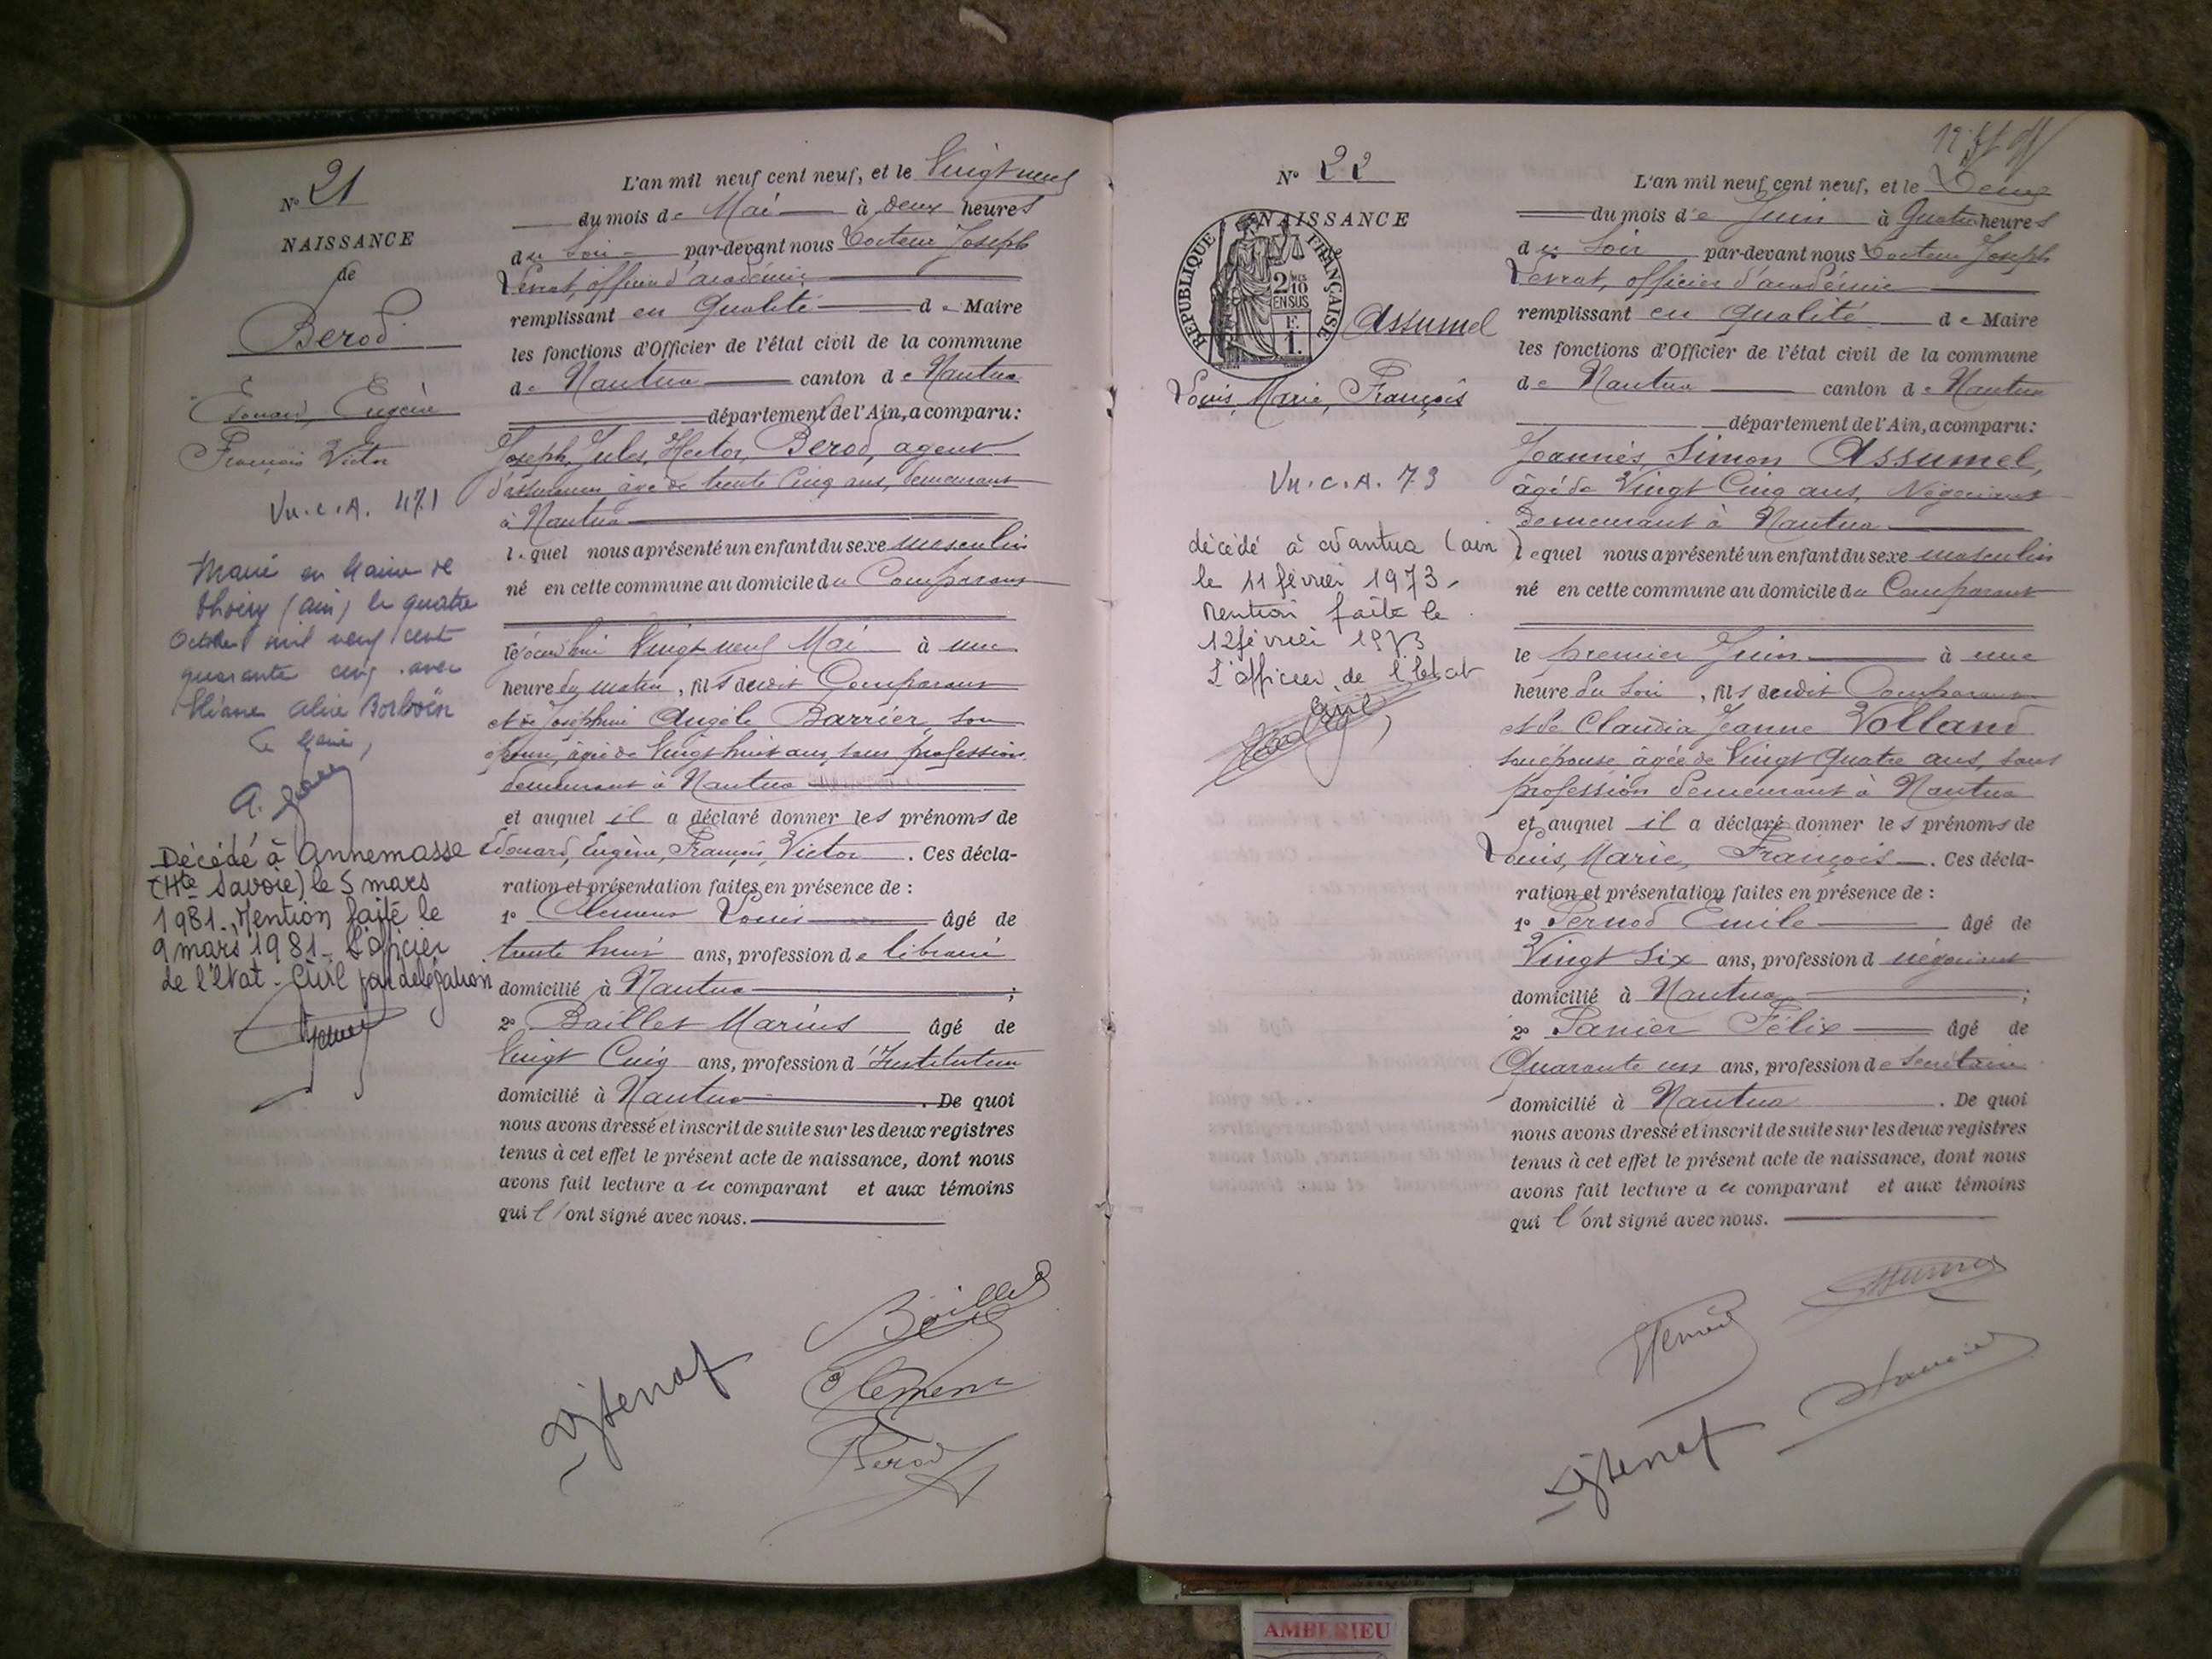 N° 21
NAISSANCE
de
Berod
Edouard, Eugène
François Victor
Vu. C. A. 471
Marié en Mairie de
Thoiry (ain) le quatre
Octobre mil neuf cent
quarante cinq avec
Alice
Le Maire,
Décédé à Annemasse
(Hte Savoie) le 5 mars
1981. Mention faite le
9 mars 1981. L'officier
de l'Etat-Civil par délégation
L'an mil neuf cent neuf, et le Vingt neuf
du mois de Mai à deux heures
du Soir par-devant nous Docteur Joseph
Levrat, officier d'académie
remplissant en qualité de Maire
les fonctions d'Officier de l'état civil de la commune
de Nantua canton de Nantua
département de l'Ain, a comparu:
Joseph, Jules, Hector, Berod, agent
d'assurances âgé de trente Cinq ans, demeurant
à Nantua
lequel nous a présenté un enfant du sexe masculin
né en cette commune au domicile du Comparant
cejourd'hui Vingt neuf Mai à une
heure du matin, fils dudit Comparant
et de Joséphine Angèle Barrier, son
épouse, âgée de Vingt huit ans, sans profession
demeurant à Nantua
et auquel il a déclaré donner les prénoms de
Edouard, Eugène, François, Victor. Ces décla-
ration et présentation faites en présence de :
1° Clément Louis âgé de
trente huit ans, profession de libraire
domicilié à Nantua ;
2° Baillet Marius âgé de
Vingt Cinq ans, profession d'Instituteur
domicilié à Nantua. De quoi
nous avons dressé et inscrit de suite sur les deux registres
tenus à cet effet le présent acte de naissance, dont nous
avons fait lecture au comparant et aux témoins
qui l'ont signé avec nous.
Baillet
Clément
Berod
N° 22
NAISSANCE
RÉPUBLIQUE FRANÇAISE
2/10
EN SUS
F.
1.
Assumel
Louis, Marie, François
Vu. C. A. 73
décédé à Nantua (ain)
le 11 février 1973.
Mention faite le
12 février 1973
L'officier de l'état
civil
L'an mil neuf cent neuf, et le Deux
du mois de Juin à Quatre heures
du Soir par-devant nous Docteur Joseph
Levrat, officier d'académie
remplissant en qualité de Maire
les fonctions d'Officier de l'état civil de la commune
de Nantua canton de Nantua
département de l'Ain, a comparu:
Joannès, Simon Assumel,
âgé de Vingt Cinq ans, Négociant
demeurant à Nantua
lequel nous a présenté un enfant du sexe masculin
né en cette commune au domicile du Comparant
le premier Juin à une
heure du Soir, fils dudit Comparant
et de Claudia Jeanne Volland
son épouse âgée de Vingt Quatre ans, sans
profession demeurant à Nantua
et auquel il a déclaré donner les prénoms de
Louis, Marie, François. Ces décla-
ration et présentation faites en présence de :
1° Pernod Emile âgé de
Vingt Six ans, profession d négociant
domicilié à Nantua ;
2° Panier Félix âgé de
Quarante un ans, profession de Secrétaire
domicilié à Nantua. De quoi
nous avons dressé et inscrit de suite sur les deux registres
tenus à cet effet le présent acte de naissance, dont nous
avons fait lecture au comparant et aux témoins
qui l'ont signé avec nous.
AMBERIEU